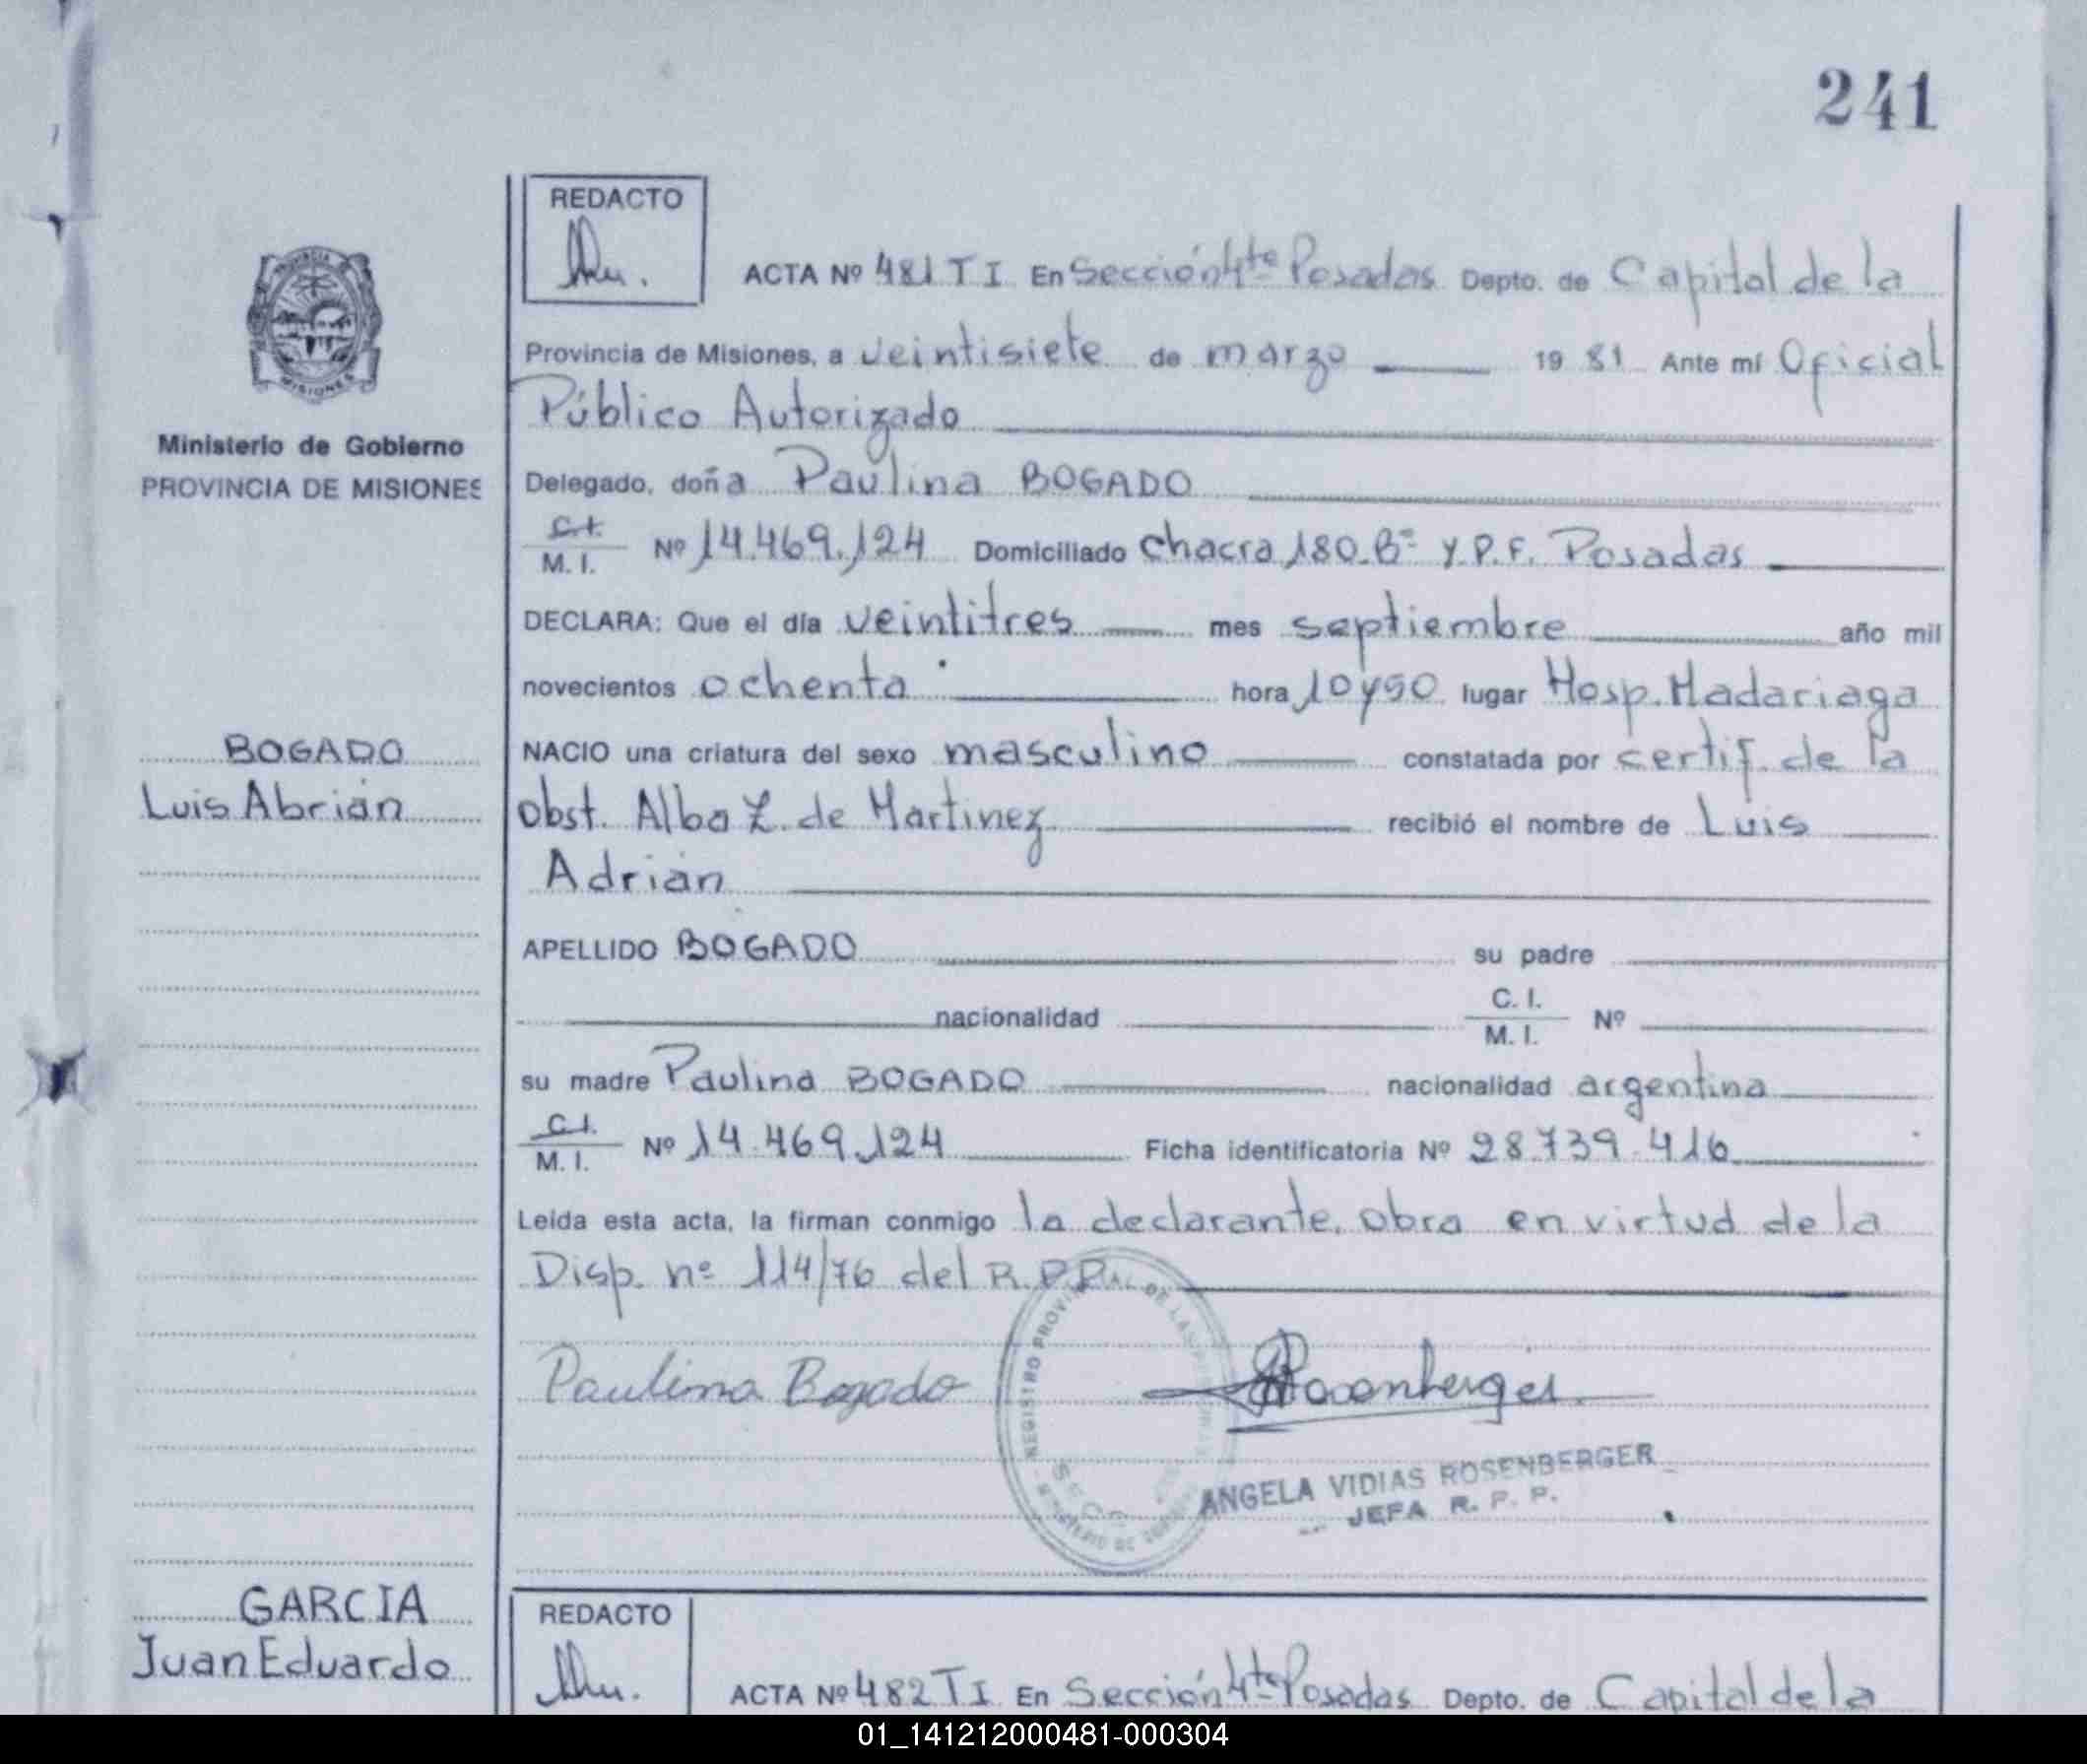 241
REDACTO
ACTA Nº 481 T I En Sección 4ta Posadas Depto. de Capital de la
Provincia de Misiones, a veintisiete de marzo 19 81 Ante mí Oficial
Público Autorizado
Ministerio de Gobierno
PROVINCIA DE MISIONES
Delegado, doña Paulina BOGADO
C.I.
M. I. Nº 14.469.124 Domiciliado chacra 180.Bº Y.P.F. Posadas
DECLARA: Que el día veintitres mes septiembre año mil
novecientos ochenta hora 10 y 50 lugar Hosp. Madariaga
BOGADO
Luis Abrián
NACIO una criatura del sexo masculino constatada por certif. de la
obst. Alba Z. de Martinez recibió el nombre de Luis
Adrián
APELLIDO BOGADO su padre
nacionalidad C. I.
M. I. Nº
su madre Paulina BOGADO nacionalidad argentina
C.I.
M. I. Nº 14.469.124 Ficha identificatoria Nº 28.739.416
Leída esta acta, la firman conmigo la declarante. Obra en virtud de la
Disp. nº 114/76 del R.P.P.
Paulina Bogado
Rosenberger
REGISTRO PROVINCIAL DE LAS PERSONAS
MINISTERIO DE GOBIERNO
ANGELA VIDIAS ROSENBERGER
JEFA R. P. P.
GARCIA
Juan Eduardo
REDACTO
ACTA Nº 482 T I En Sección 4ta Posadas Depto. de Capital de la
01_141212000481-000304